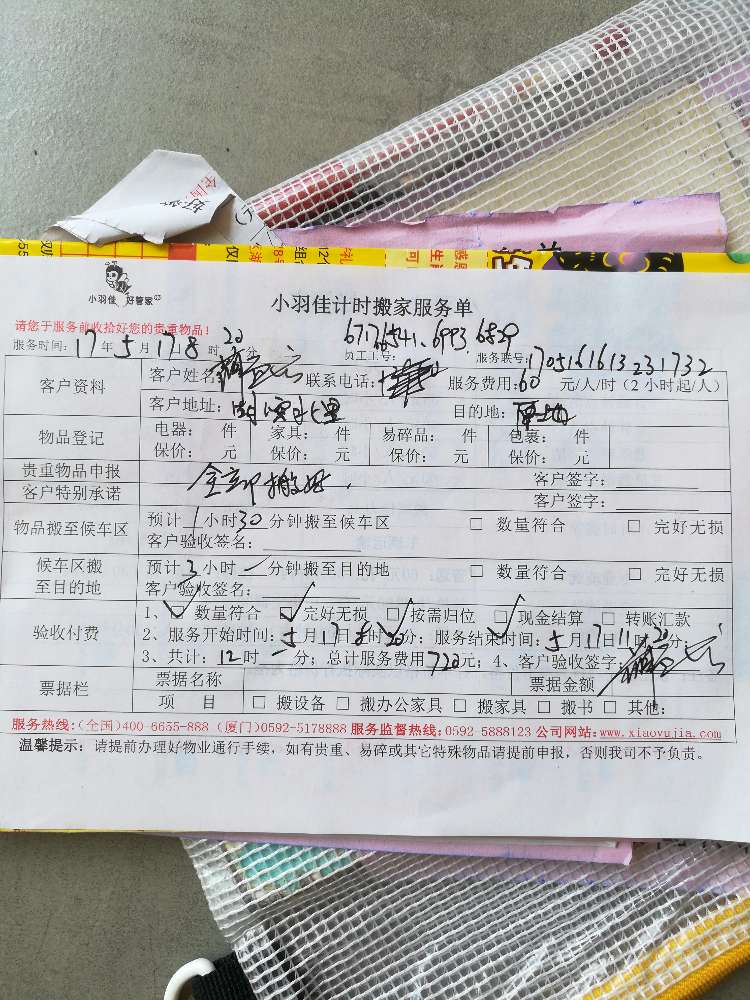 小羽佳 好管家
小羽佳计时搬家服务单
请您于服务前收拾好您的贵重物品!
服务时间: 17年5月17日8时20分 员工工号: 67176541、6993 6829 服务联号: 170516161323 1732
客户资料 客户姓名: 联系电话: 服务费用:60 元/人/时(2小时起/人)
客户地址: 目的地:
物品登记 电器: 件 家具: 件 易碎品: 件 包裹: 件
保价: 元 保价: 元 保价: 元 保价: 元
贵重物品申报 客户签字:
客户特别承诺 客户签字:
物品搬至候车区 预计 1小时30分钟搬至候车区 □ 数量符合 □ 完好无损
客户验收签名:
候车区搬至目的地 预计3小时一分钟搬至目的地 □ 数量符合 □ 完好无损
客户验收签名:
验收付费 1、□ 数量符合 □ 完好无损 □ 按需归位 □ 现金结算 □ 转账汇款
2、服务开始时间:5月17日8时20分; 服务结束时间:5月17日11时20分;
3、共计:12时一分; 总计服务费用720元; 4、客户验收签字:
票据栏 票据名称 票据金额
项 目 □ 搬设备 □ 搬办公家具 □ 搬家具 □ 搬书 □ 其他:
服务热线:(全国)400-6655-888 (厦门)0592-5178888 服务监督热线:0592-5888123 公司网站:www.xiaoyujia.com
温馨提示: 请提前办理好物业通行手续, 如有贵重、易碎或其它特殊物品请提前申报, 否则我司不予负责。